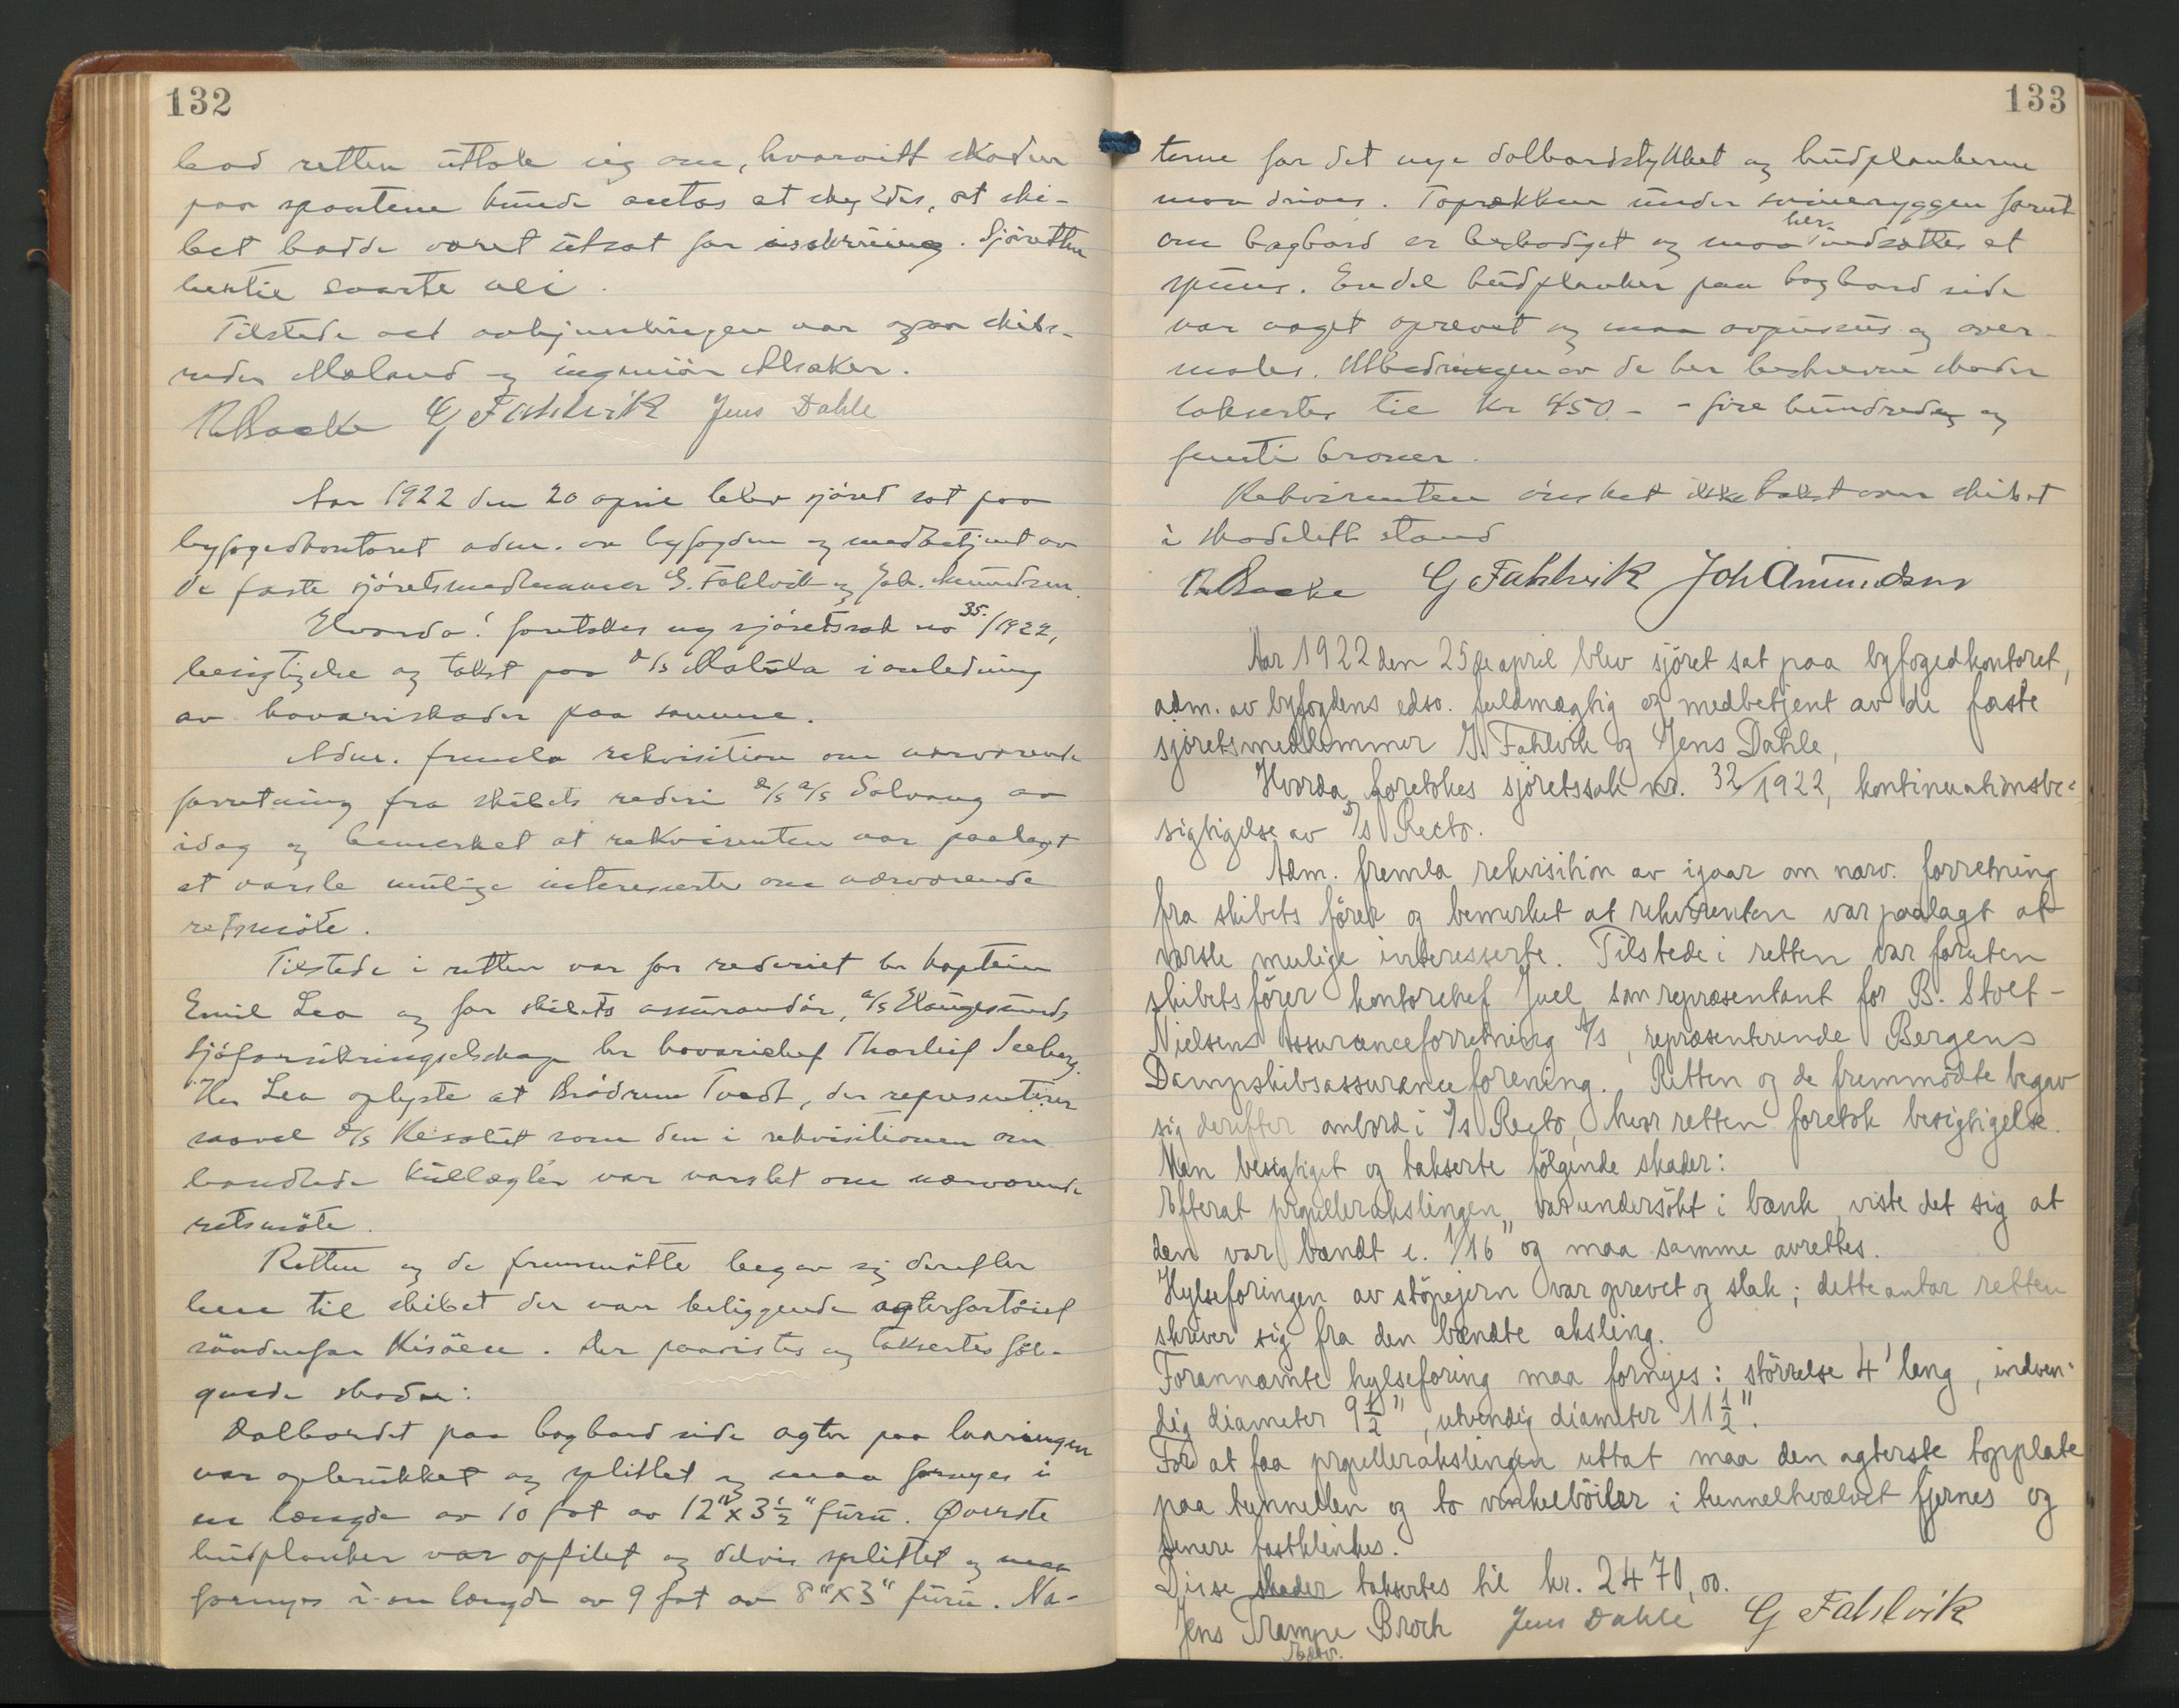 132
bad retten uttale sig om, hvorvitt skaden
paa spantene kunde antas at skyldes, at ski-
bet hadde været utsat for isskruing. Sjöretten
hertil svarte nei.
Tilstede ved avhjemlingen var ogsaa skibs-
reder Mæland og ingeniör Alsaker.
R. Backe G Fahlvik Jens Dahle
Aar 1922 den 20 april blev sjöret sat paa
byfogedkontoret adm. av byfogden og medbetjent av
de faste sjöretsmedlemmer G. Fahlvik og Joh. Amundsen.
Hvorda! foretokes ny sjöretssak no 35./1922,
besigtigelse og takst paa d/s Malska i anledning
av havariskader paa samme.
Adm. fremla rekvisition om nærværende
forretning fra skibets rederi a/s d/s Solvang av
idag og bemerket at rekvirenten var paalagt
at varsle mulige interesserte om nærværende
retsmöte.
Tilstede i retten var for rederiet hr kaptein
Emil Lea og for skibets assurandör, a/s Haugesunds
Sjöforsikringsselskap hr havarichef Thorleif Seeberg.
Hr Lea oplyste at Brödrene Tvedt, der representerer
saavel d/s Resolut som den i rekvisitionen om
handlede kullægter var varslet om nærværende
retsmöte.
Retten og de fremmötte begav sig derefter
hen til skibet der var beliggende agterfortöiet
söndenfor Risöen. Her paavistes og taksertes föl-
gende skader:
Dolbordet paa bagbord side agter paa laaringen
var opbrukket og splittet og maa fornyes i
en længde av 10 fot av 12"x3½" furu. Øverste
hudplanker var opfilet og delvis splittet og maa
fornyes i en længde av 9 fot av 8"x3" furu. Na-
133
terne for det nye dolbordstykket og hudplankerne
maa drives. Toprækken under svineryggen forut
om bagbord er beskadiget og maa her indsættes et
spuns. En del hudplanker paa bagbord side
var noget oprevet og maa avpusses og over-
males. Utbedringen av de her beskrevne skader
taksertes til kr 450.- - fire hundrede og
femti kroner.
Rekvirenten önsket ikke takst over skibet
i skadelitt stand
R. Backe G Fahlvik Joh Amundsen
Aar 1922 den 25de april blev sjöret sat paa byfogedkontoret,
adm. av byfogdens edsv. fuldmægtig og medbetjent av de faste
sjöretsmedlemmer G. Fahlvik og Jens Dahle,
Hvorda foretokes sjöretssak nr. 32/1922, kontinuationsbe-
sigtigelse av s/s Recto.
Adm. fremla rekvisition av igaar om nærv. forretning
fra skibets förer og bemerket at rekvirenten var paalagt at
varsle mulige interesserte. Tilstede i retten var foruten
skibets förer kontorchef Juel som representant for B. Stolt-
Nielsens assuranceforretning A/s, repræsenterende Bergens
Dampskibsassuranceforening. Retten og de fremmödte begav
sig derefter ombord i s/s Recto, hvor retten foretok besigtigelse.
Man besigtiget og takserte fölgende skader:
Efterat propellerakslingen var undersökt i bænk, viste det sig at
den var bændt c. 1/16" og maa samme avrettes.
Hylseforingen av stöpejern var oprevet og slak; dette antar retten
skriver sig fra den bændte aksling.
Forannæmte hylseforing maa fornyes: störrelse 4' lang, indven-
dig diameter 9½", utvendig diameter 11½".
For at faa propellerakslingen uttat maa den agterste topplate
paa tunnellen og to vinkelböiler i tunnelhvælvet fjernes og
senere fastklinkes.
Disse skader taksertes til kr. 2470,00.
Jens Trampe Broch Jens Dahle G Fahlvik
edsv.